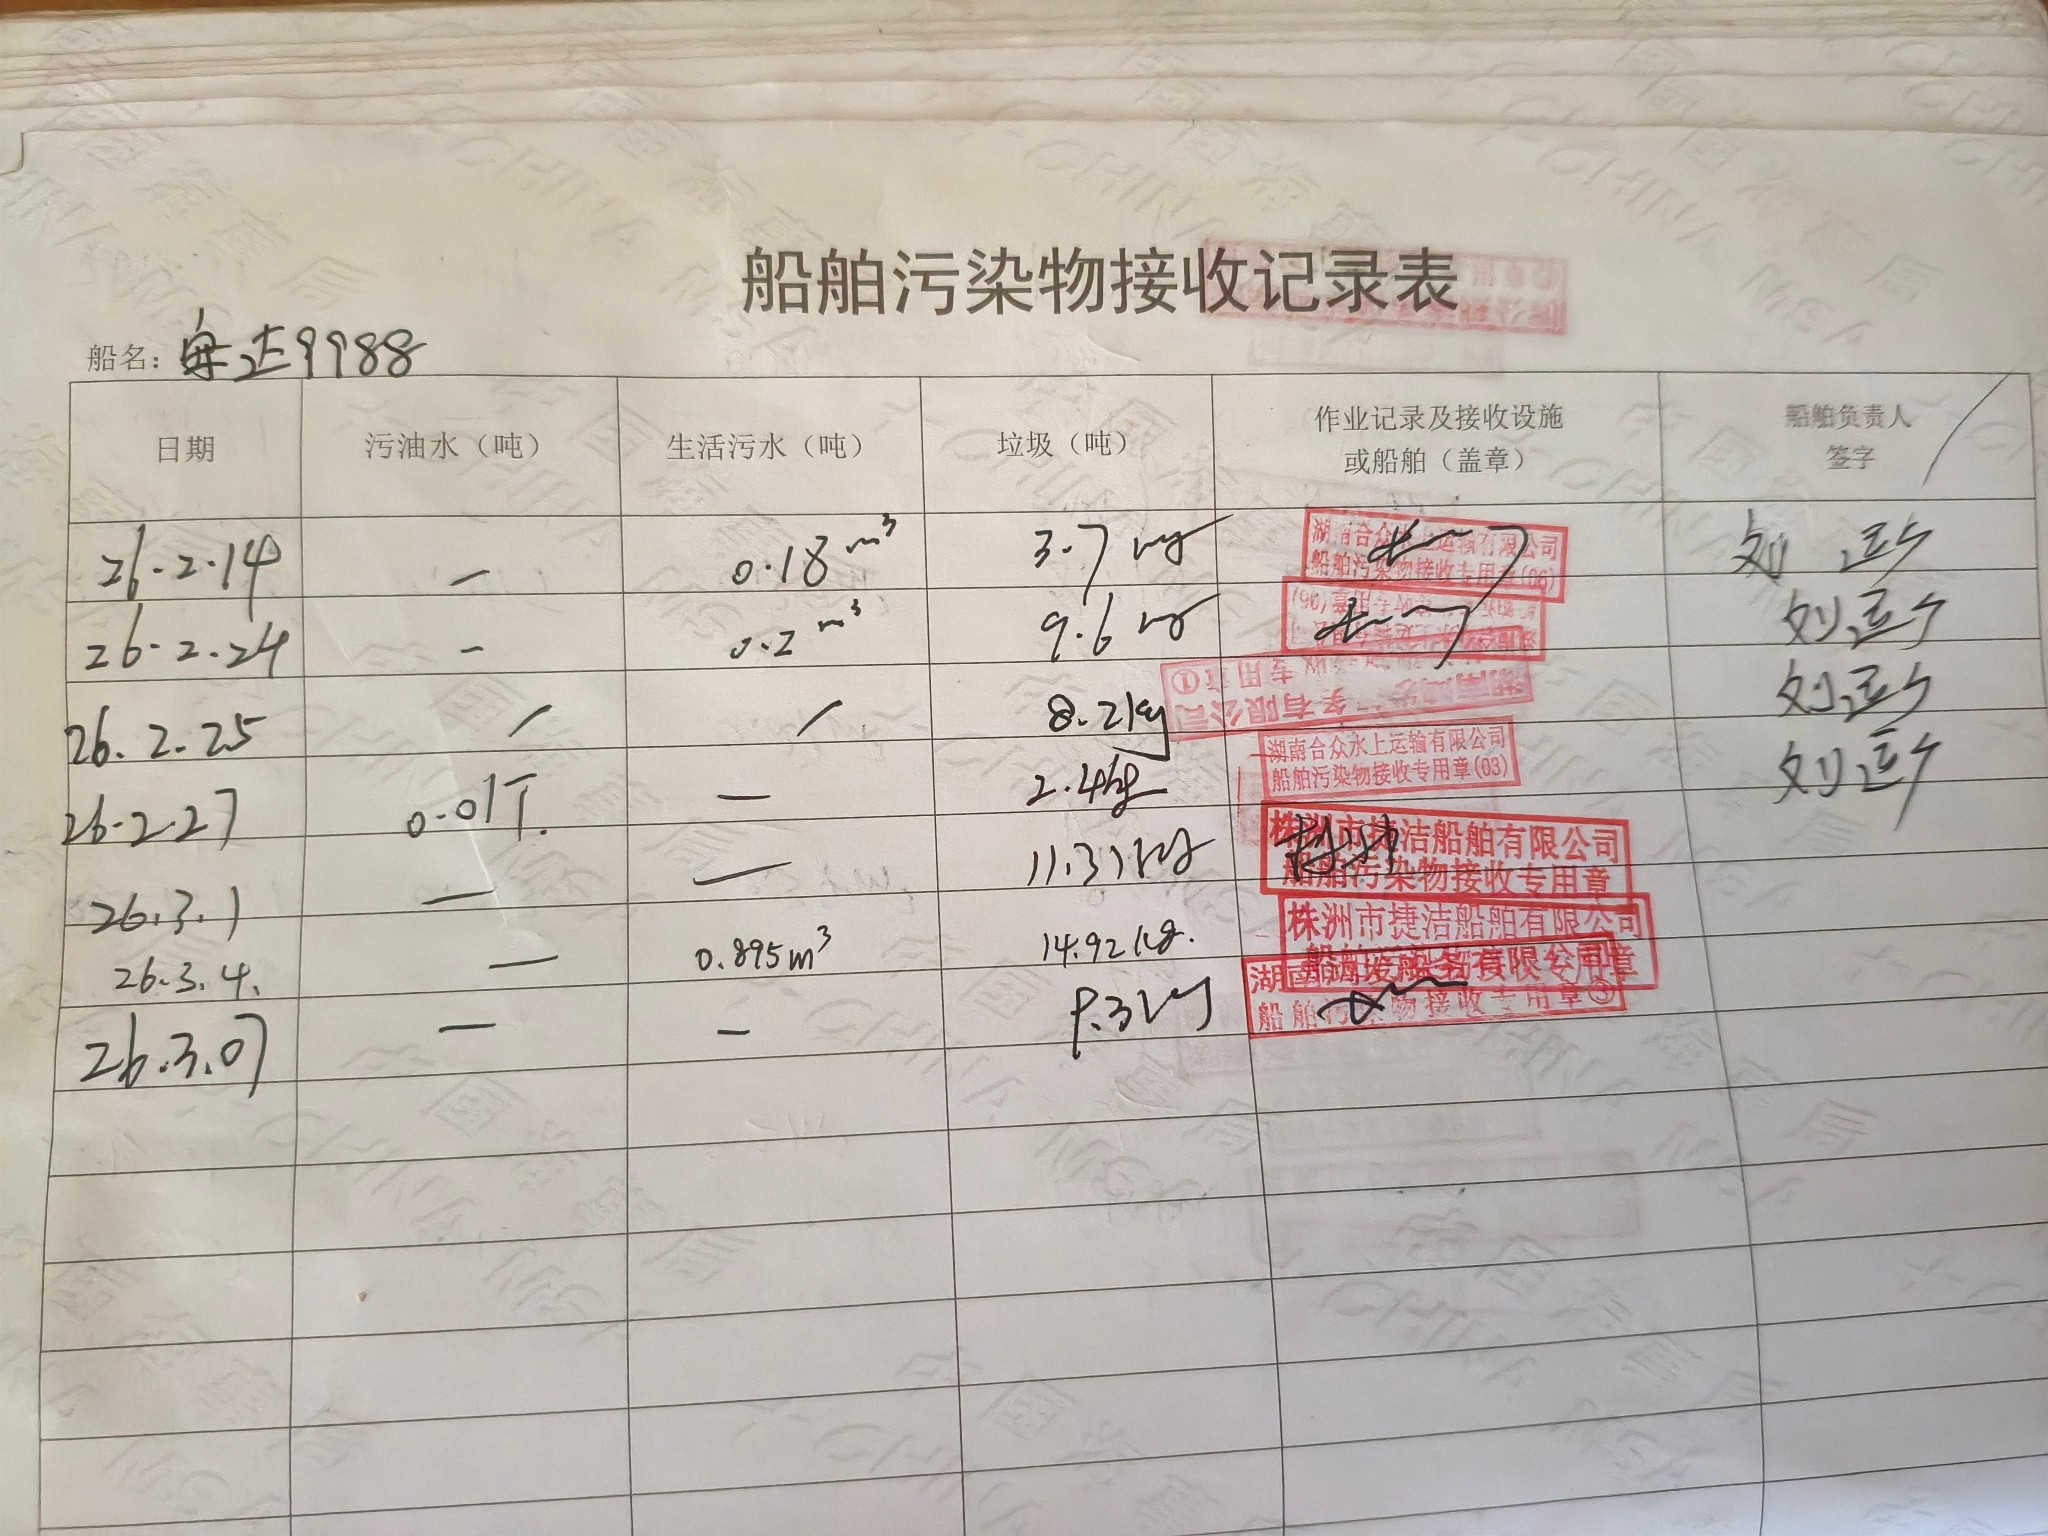 船舶污染物接收记录表
船名：舟达9988
日期 污油水（吨） 生活污水（吨） 垃圾（吨） 作业记录及接收设施或船舶（盖章） 船舶负责人签字
26.2.14 — 0.18 m³ 3.7 kg 湖南合众水上运输有限公司 船舶污染物接收专用章(06) 刘
26.2.24 - 0.2 m³ 9.6 kg 刘
26.2.25 / / 8.2kg 专用章① 有限公司 刘
26.2.27 0.01T. — 2.4kg 湖南合众水上运输有限公司 船舶污染物接收专用章(03) 刘
26.3.1 — — 11.31kg 株洲市捷洁船舶有限公司 船舶污染物接收专用章
26.3.4. — 0.895m³ 14.92kg. 株洲市捷洁船舶有限公司 专用章
26.3.07 — — 9.3kg 船舶污染物接收专用章③